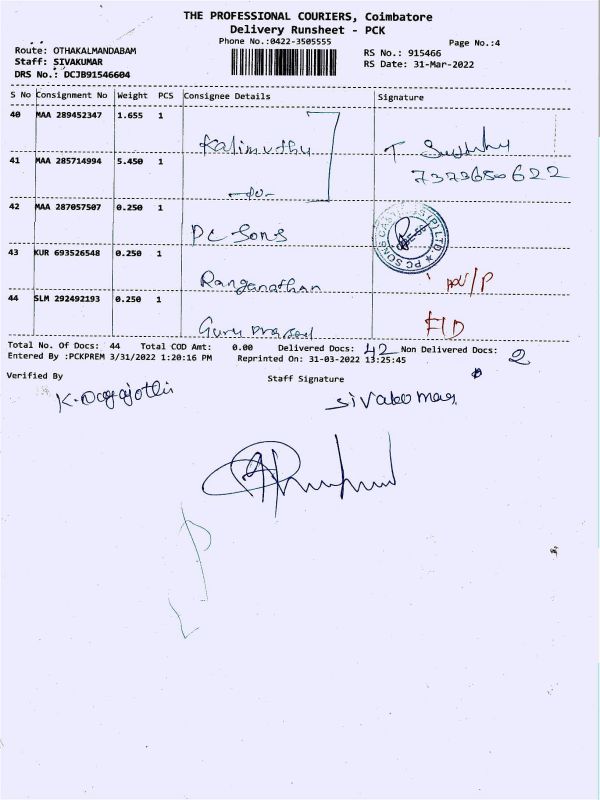 THE PROFESSIONAL COURIERS, Coimbatore
Delivery Runsheet - PCK
Phone No.:0422-3505555
Page No.:4
Route: OTHAKALMANDABAM
Staff: SIVAKUMAR
DRS No.: DCJB91546604
RS No.: 915466
RS Date: 31-Mar-2022
S No Consignment No Weight PCS Consignee Details Signature
40 MAA 289452347 1.655 1
Kalimuthu
41 MAA 285714994 5.450 1
7373650622
-do-
42 MAA 287057507 0.250 1
PC Sons
43 KUR 693526548 0.250 1
Ranganathan
44 SLM 292492193 0.250 1
Guru Prasad
Total No. Of Docs: 44 Total COD Amt: 0.00 Delivered Docs: 42 Non Delivered Docs: 2
Entered By :PCKPREM 3/31/2022 1:20:16 PM Reprinted On: 31-03-2022 13:25:45
Verified By
Staff Signature
Sivakumar